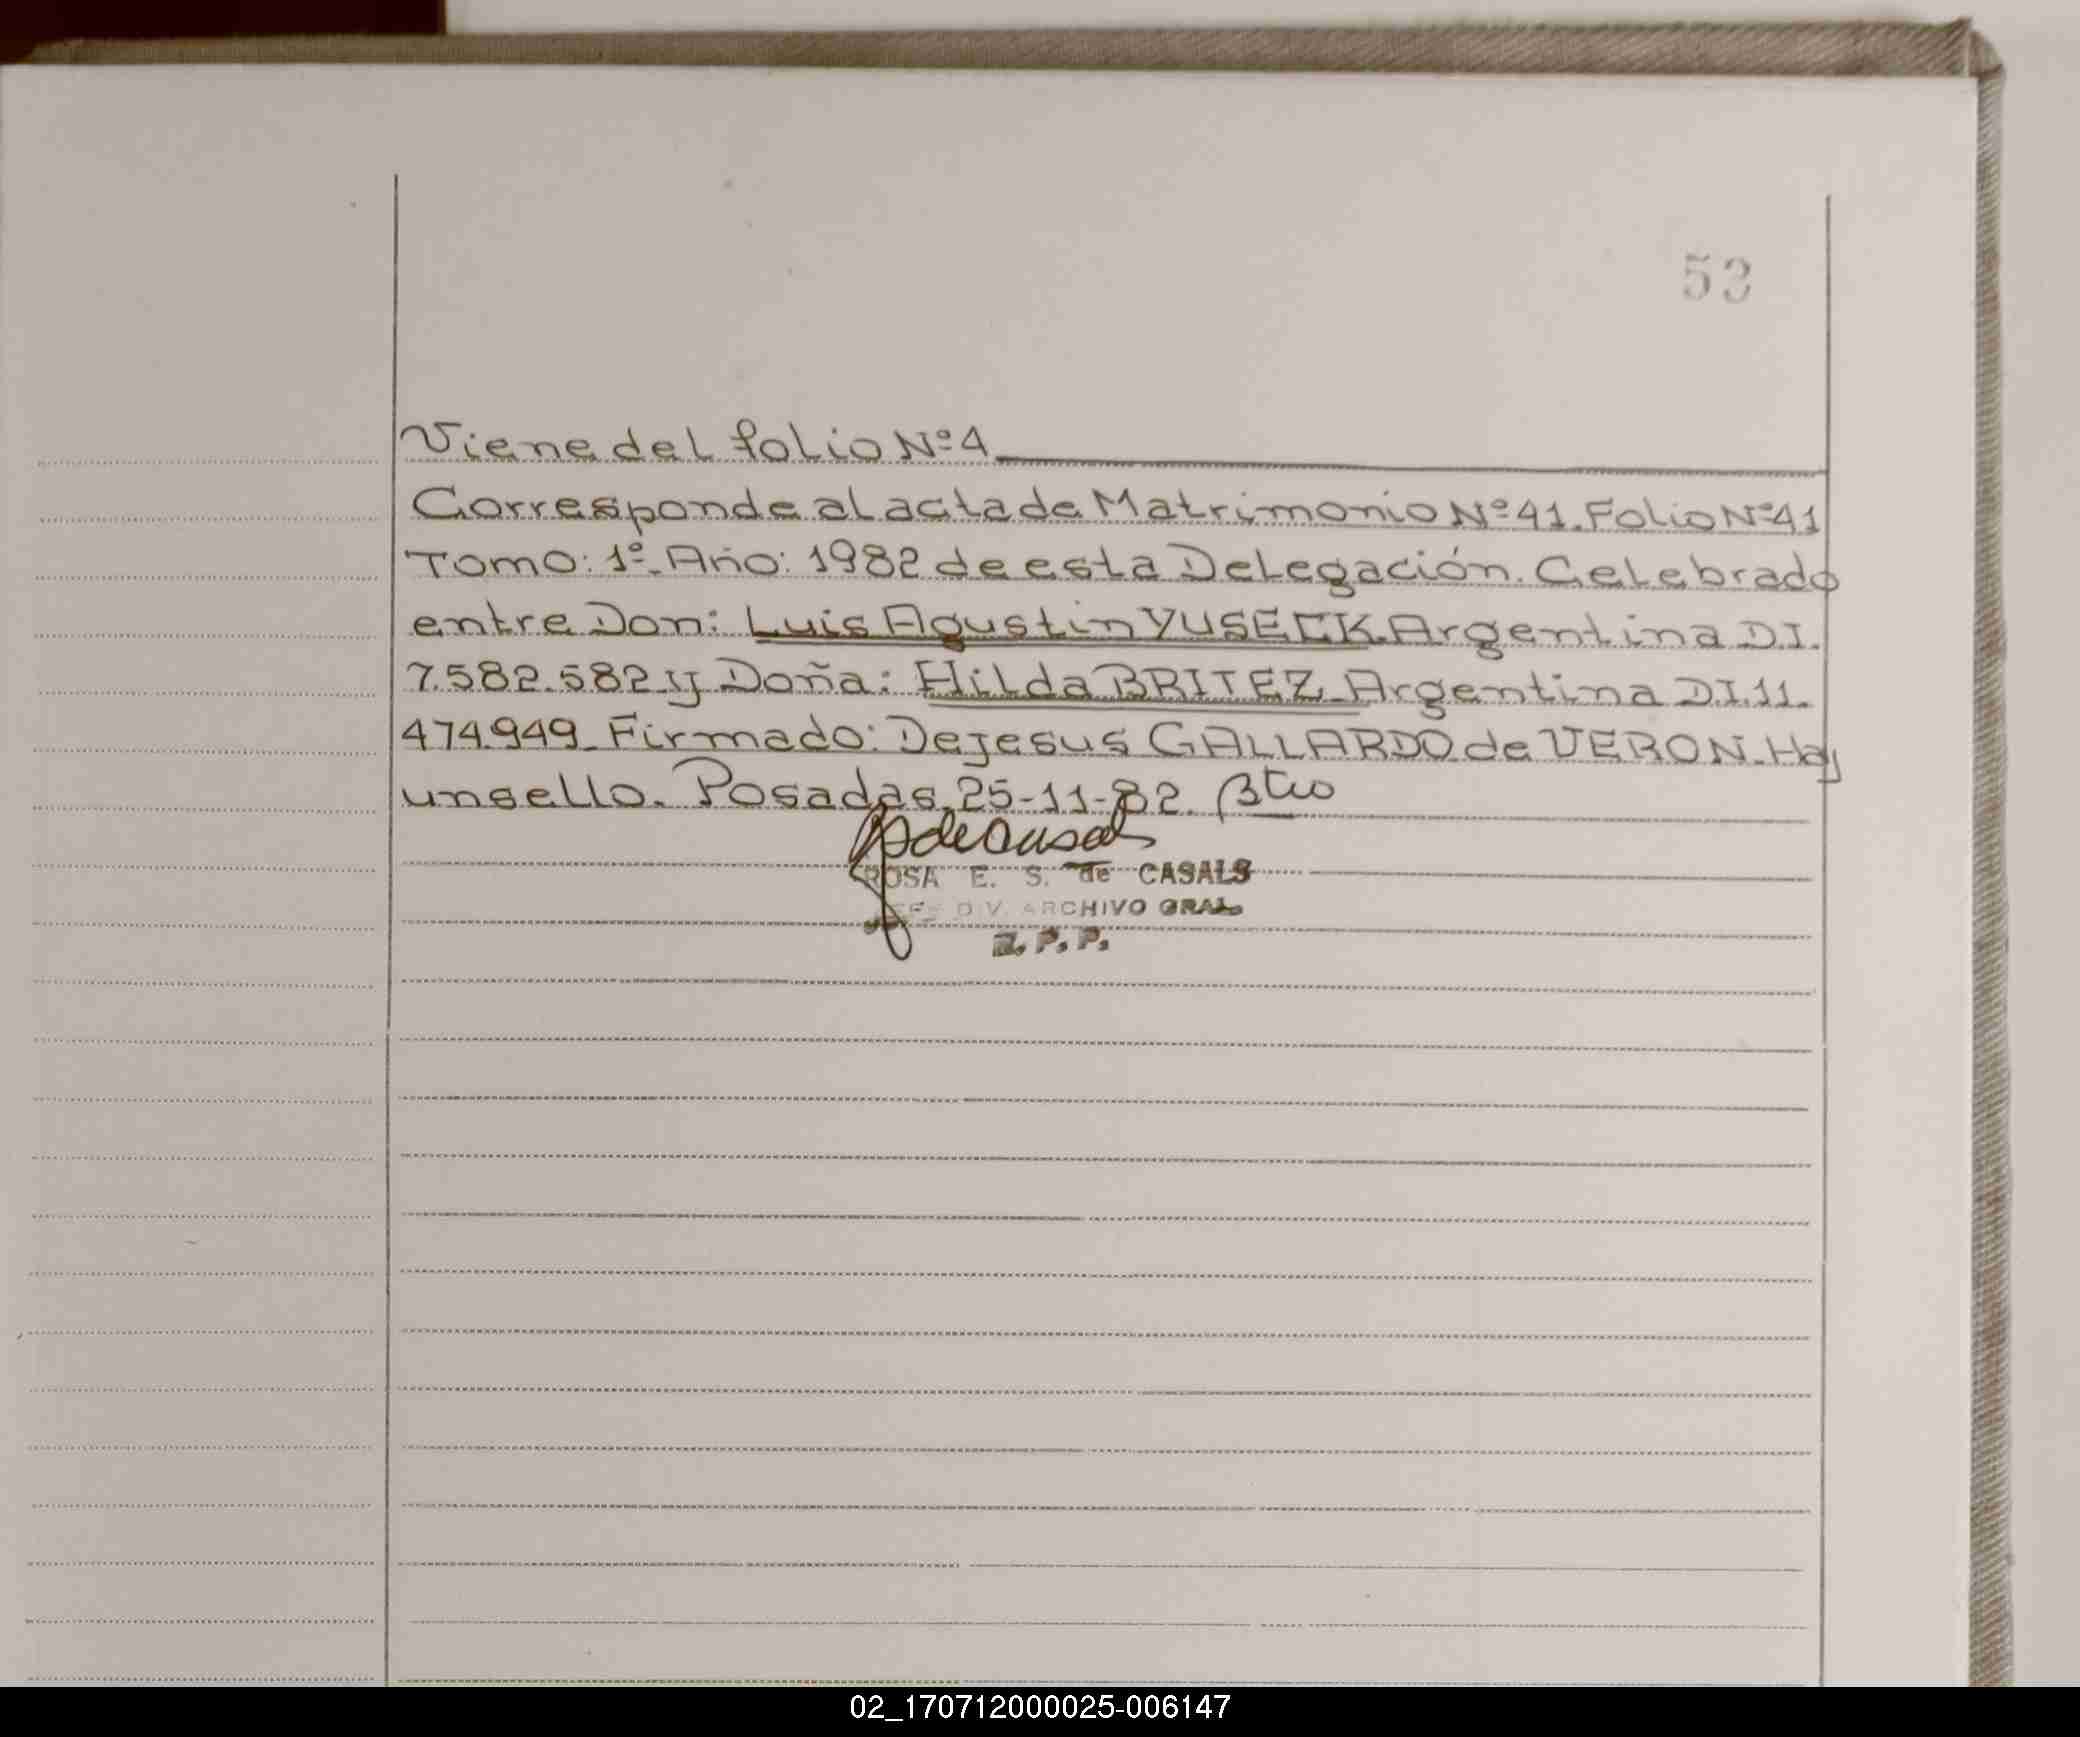 53
Viene del folio Nº 4
Corresponde al acta de Matrimonio Nº 41. Folio Nº 41
Tomo: 1º. Año: 1982 de esta Delegación. Celebrado
entre Don: Luis Agustin YUSECK. Argentina D.I.
7.582.582 y Doña: Hilda BRITEZ. Argentina D.I. 11.
474.949. Firmado: Dejesus GALLARDO de VERON. Hay
un sello. Posadas, 25-11-82.
ROSA E. S. de CASALS
JEFE DIV. ARCHIVO GRAL.
R. P. P.
02_170712000025-006147